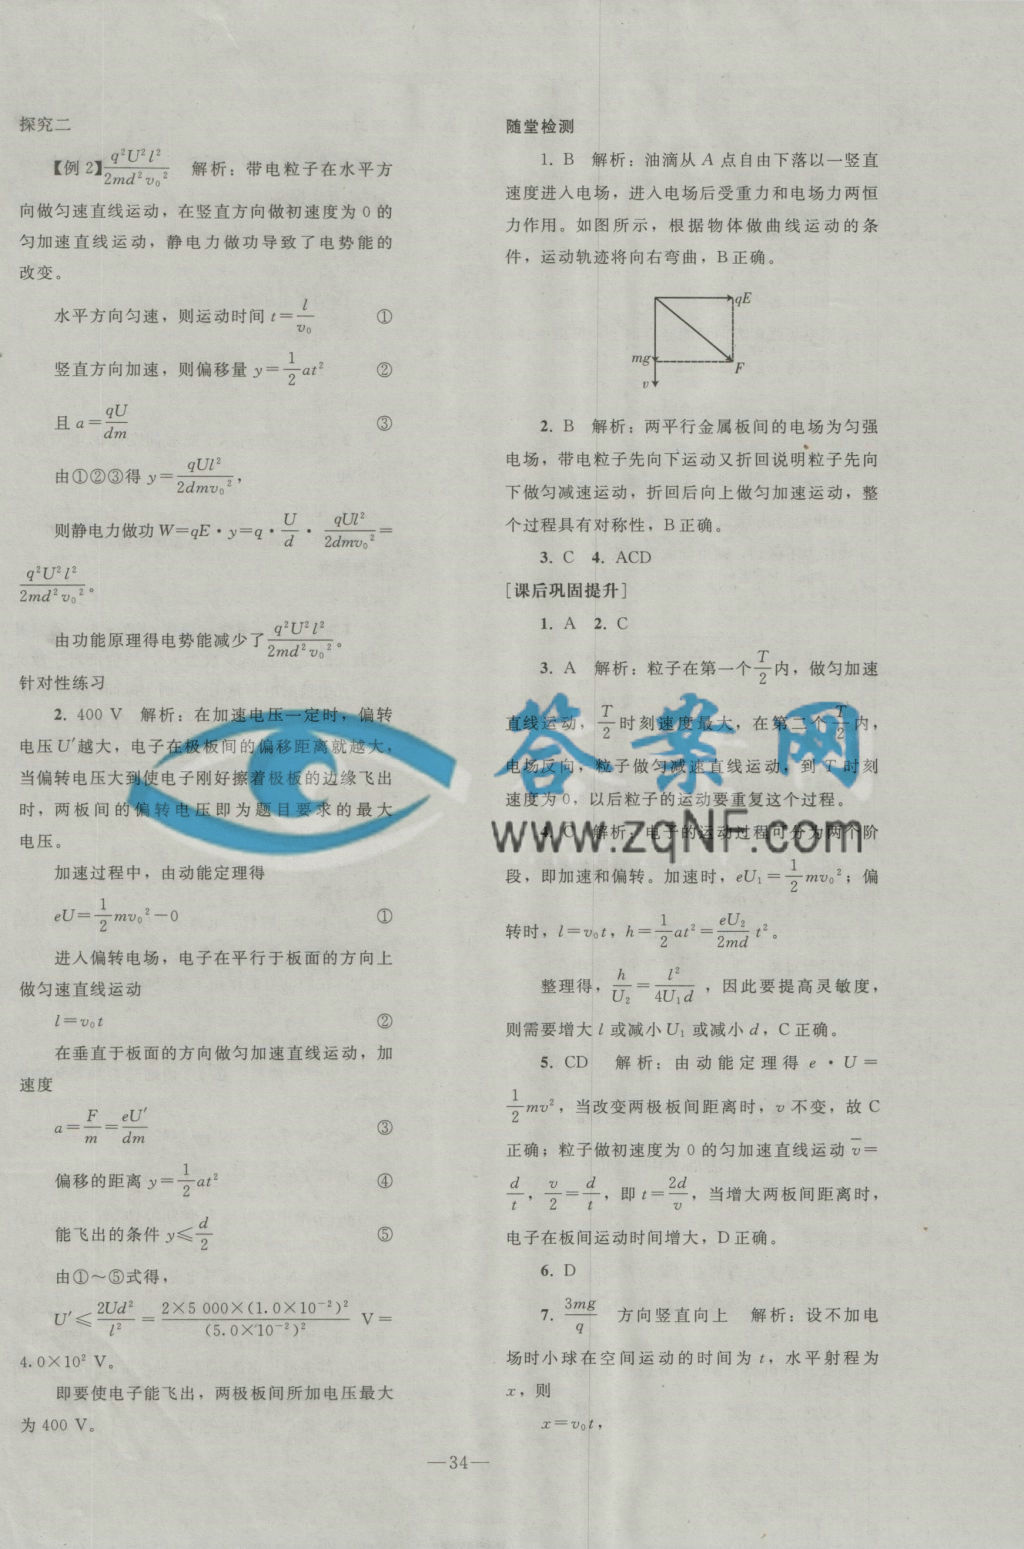 探究二
【例2】q²U²l²/2md²v₀² 解析：带电粒子在水平方
向做匀速直线运动，在竖直方向做初速度为0的
匀加速直线运动，静电力做功导致了电势能的
改变。
水平方向匀速，则运动时间 t=l/v₀ ①
竖直方向加速，则偏移量 y=1/2at² ②
且 a=qU/dm ③
由①②③得 y=qUl²/2dmv₀²，
则静电力做功 W=qE·y=q·U/d·qUl²/2dmv₀²=
q²U²l²/2md²v₀²。
由功能原理得电势能减少了q²U²l²/2md²v₀²。
针对性练习
2. 400 V 解析：在加速电压一定时，偏转
电压U′越大，电子在极板间的偏移距离就越大，
当偏转电压大到使电子刚好擦着极板的边缘飞出
时，两板间的偏转电压即为题目要求的最大
电压。
加速过程中，由动能定理得
eU=1/2mv₀²－0 ①
进入偏转电场，电子在平行于板面的方向上
做匀速直线运动
l=v₀t ②
在垂直于板面的方向做匀加速直线运动，加
速度
a=F/m=eU′/dm ③
偏移的距离 y=1/2at² ④
能飞出的条件 y≤d/2 ⑤
由①～⑤式得，
U′≤2Ud²/l²=2×5 000×(1.0×10⁻²)²/(5.0×10⁻²)² V=
4.0×10² V。
即要使电子能飞出，两极板间所加电压最大
为 400 V。
随堂检测
1. B 解析：油滴从A点自由下落以一竖直
速度进入电场，进入电场后受重力和电场力两恒
力作用。如图所示，根据物体做曲线运动的条
件，运动轨迹将向右弯曲，B正确。
qE
mg
F
v
2. B 解析：两平行金属板间的电场为匀强
电场，带电粒子先向下运动又折回说明粒子先向
下做匀减速运动，折回后向上做匀加速运动，整
个过程具有对称性，B正确。
3. C 4. ACD
[课后巩固提升]
1. A 2. C
3. A 解析：粒子在第一个T/2内，做匀加速
直线运动，T/2时刻速度最大，在第二个T/2内，
电场反向，粒子做匀减速直线运动，到T时刻
速度为0，以后粒子的运动要重复这个过程。
4. C 解析：电子的运动过程可分为两个阶
段，即加速和偏转。加速时，eU₁=1/2mv₀²；偏
转时，l=v₀t，h=1/2at²=eU₂/2md t²。
整理得，h/U₂=l²/4U₁d，因此要提高灵敏度，
则需要增大l或减小U₁或减小d，C正确。
5. CD 解析：由动能定理得 e·U=
1/2mv²，当改变两极板间距离时，v不变，故C
正确；粒子做初速度为0的匀加速直线运动v̄=
d/t，v/2=d/t，即t=2d/v，当增大两板间距离时，
电子在板间运动时间增大，D正确。
6. D
7. 3mg/q 方向竖直向上 解析：设不加电
场时小球在空间运动的时间为t，水平射程为
x，则
x=v₀t，
—34—
答案网
www.zqNF.com